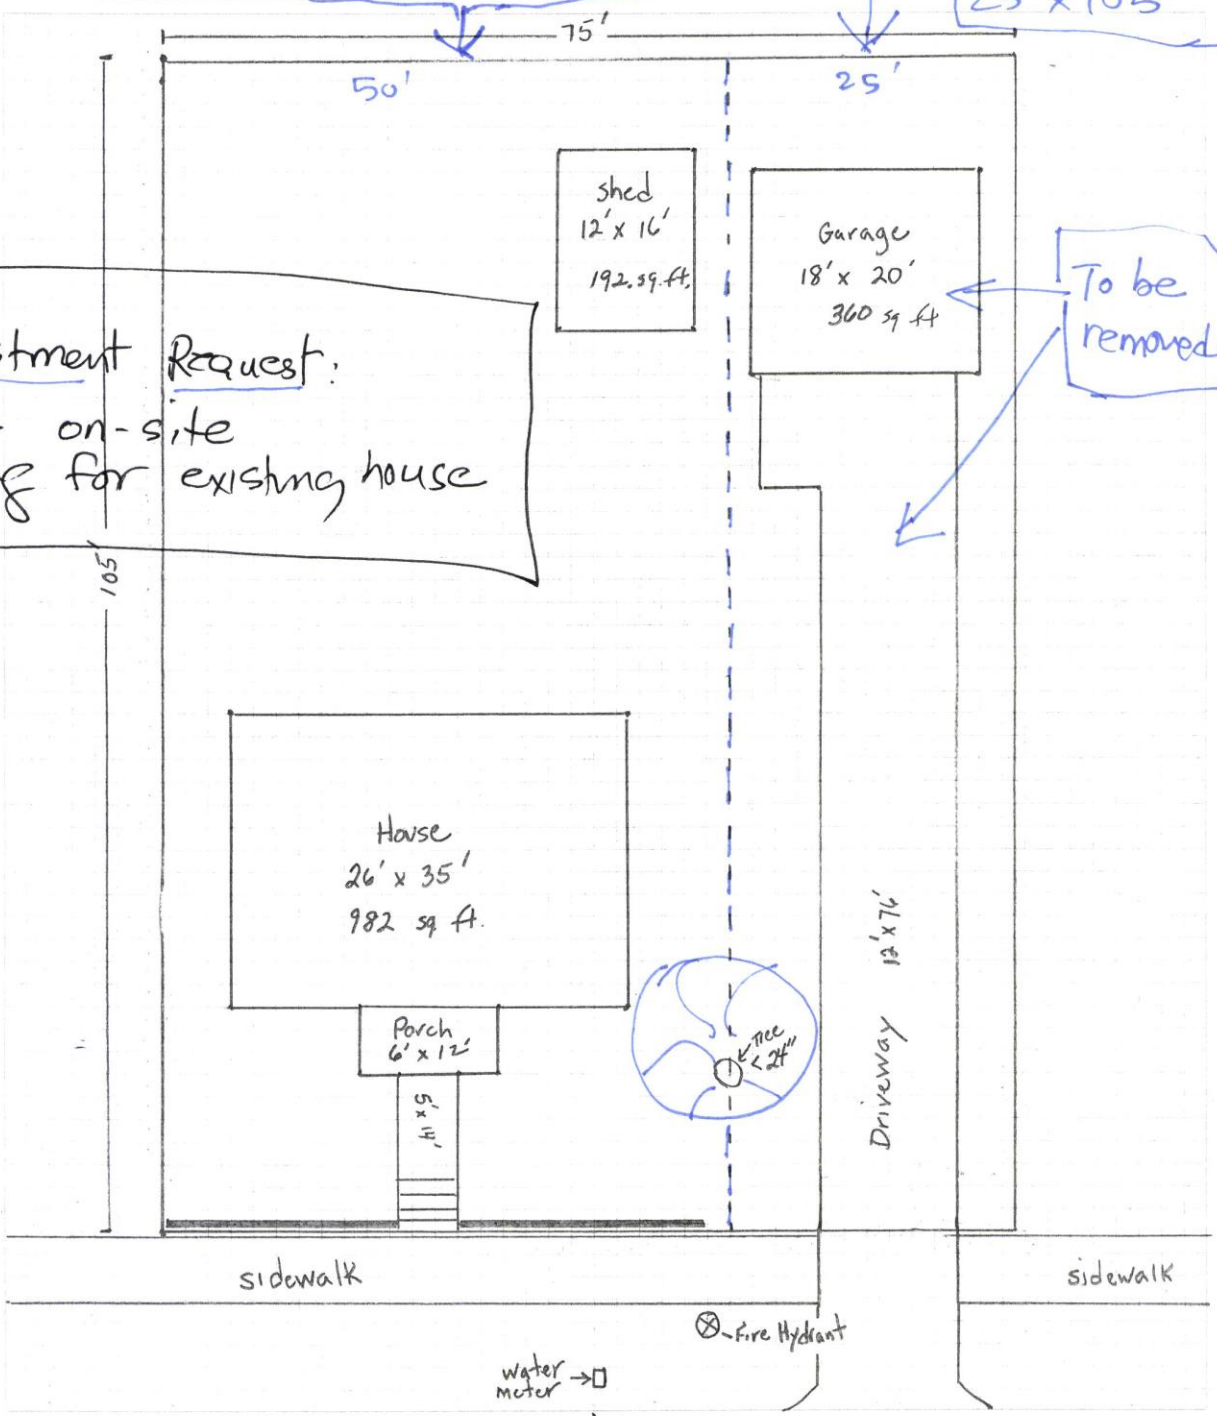 75'
25' x 105'
50'
25'
shed
12' x 16'
192.sq.ft.
Garage
18' x 20'
360 sq ft
To be
removed
Request:
on-site
for existing house
105'
House
26' x 35'
982 sq ft.
Porch
6' x 12'
5' x 14'
Tree
< 24"
Driveway 12' x 76'
sidewalk
sidewalk
Fire Hydrant
water
meter